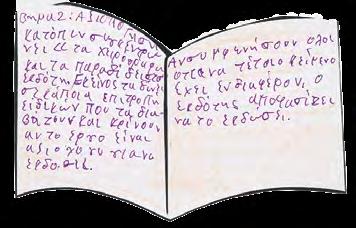 Βήμα 2: Αξιολόγηση
κατόπιν ο συγγραφέας
στέλνει τα χειρόγραφα
και τα παραδίδει στο
εκδότη. Εκείνος τα δίνει
σε κάποια επιτροπή
ειδικών που τα δια-
βάζουν και κρίνουν
αν το έργο είναι
αξιόλογο για να
εκδοθεί.
Αν συμφωνήσουν όλοι
ότι ένα τέτοιο κείμενο
έχει ενδιαφέρον, ο
εκδότης αποφασίζει
να το εκδώσει.